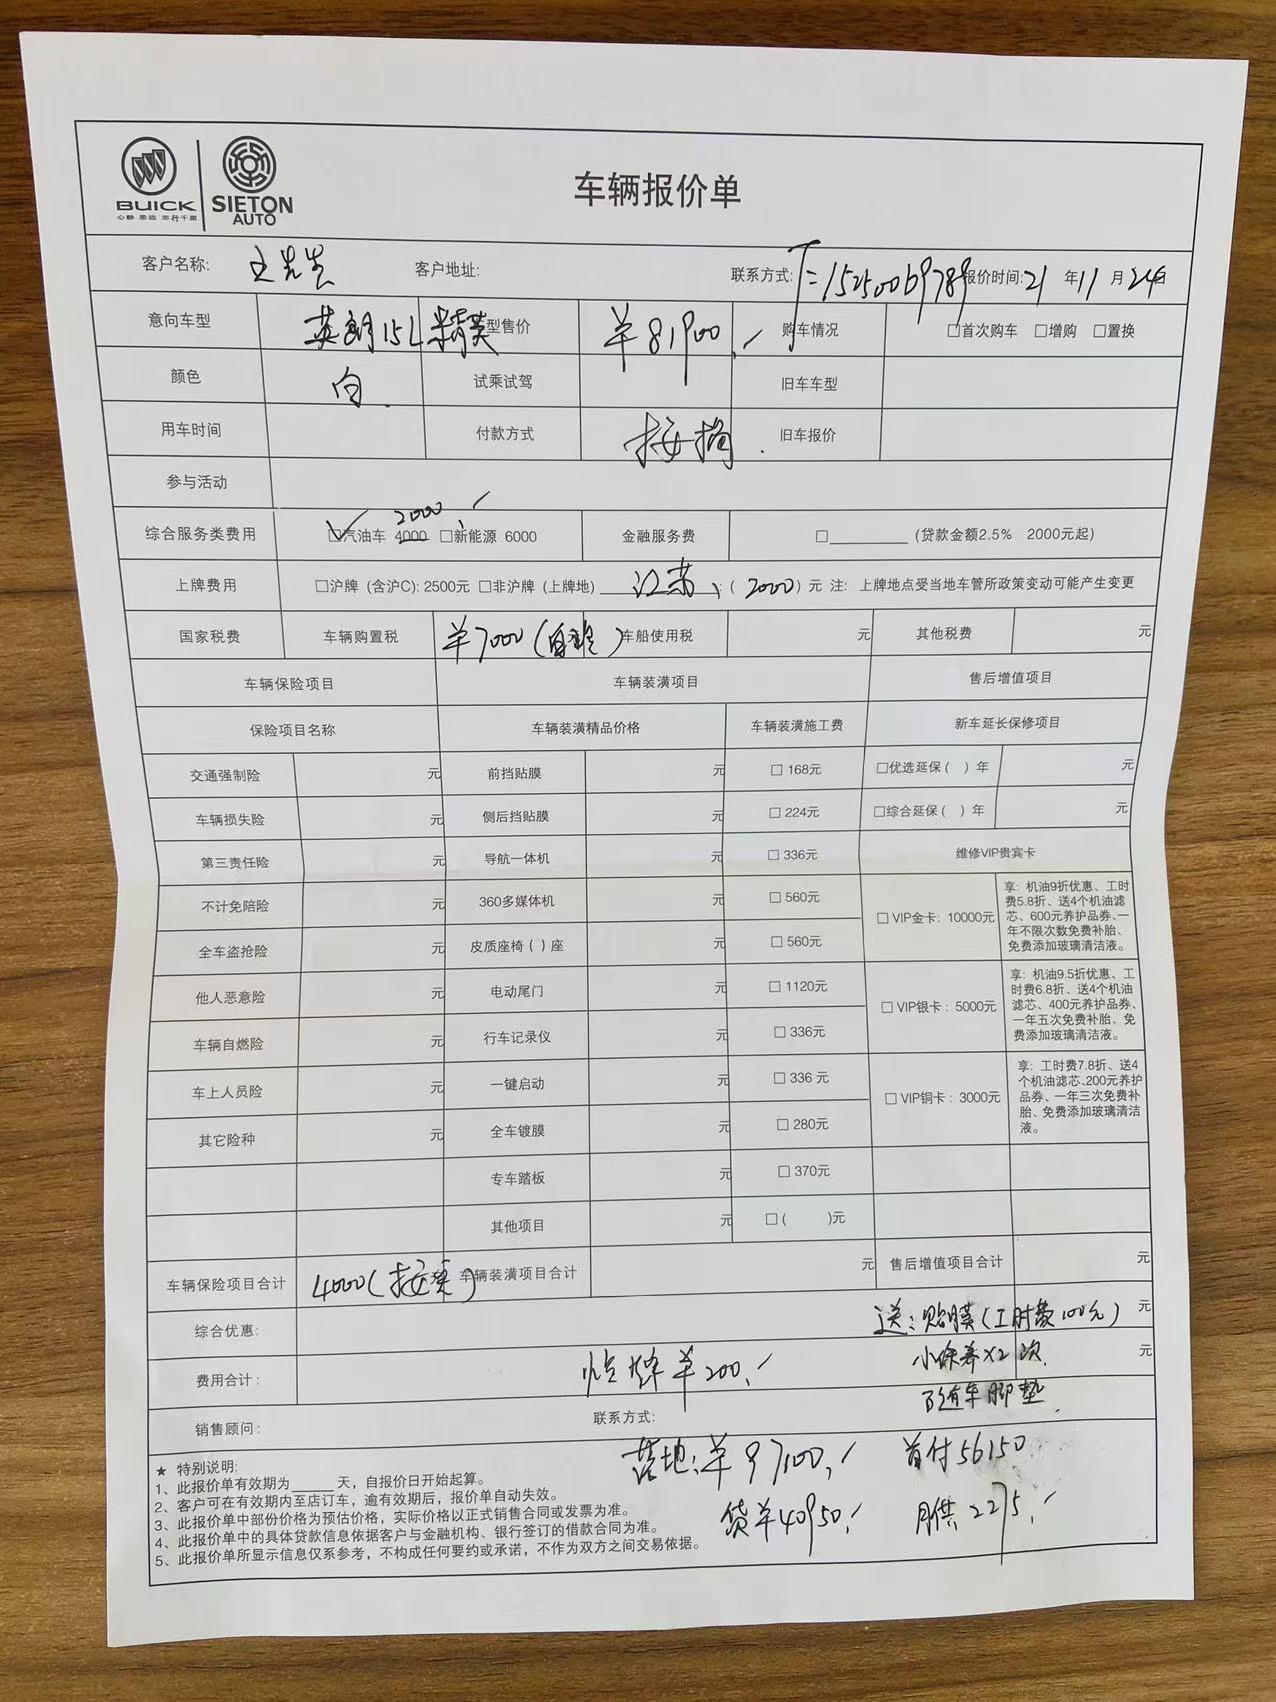 BUICK
心静 思远 志行千里
SIETON
AUTO
车辆报价单
客户名称: 王先生 客户地址: 联系方式: T=15250069789 报价时间: 21 年 11 月 24 日
意向车型 英朗15L精英 型售价 ¥81900 购车情况 □首次购车 □增购 □置换
颜色 白 试乘试驾 旧车车型
用车时间 付款方式 按揭 旧车报价
参与活动
综合服务类费用 ☑汽油车 4000 2000 □新能源 6000 金融服务费 □________ (贷款金额2.5% 2000元起)
上牌费用 □沪牌 (含沪C): 2500元 □非沪牌 (上牌地) 江苏 (2000) 元 注: 上牌地点受当地车管所政策变动可能产生变更
国家税费 车辆购置税 ¥7000 车船使用税 元 其他税费 元
车辆保险项目 车辆装潢项目 售后增值项目
保险项目名称 车辆装潢精品价格 车辆装潢施工费 新车延长保修项目
交通强制险 元 前挡贴膜 元 □ 168元 □优选延保 ( ) 年 元
车辆损失险 元 侧后挡贴膜 元 □ 224元 □综合延保 ( ) 年 元
第三责任险 元 导航一体机 元 □ 336元 维修VIP贵宾卡
不计免赔险 元 360多媒体机 元 □ 560元
全车盗抢险 元 皮质座椅 ( ) 座 元 □ 560元
□ VIP金卡: 10000元
享: 机油9折优惠、工时
费5.8折、送4个机油滤
芯、600元养护品券、一
年不限次数免费补胎、
免费添加玻璃清洁液。
他人恶意险 元 电动尾门 元 □ 1120元
车辆自燃险 元 行车记录仪 元 □ 336元
□ VIP银卡: 5000元
享: 机油9.5折优惠、工
时费6.8折、送4个机油
滤芯、400元养护品券、
一年五次免费补胎、免
费添加玻璃清洁液。
车上人员险 元 一键启动 元 □ 336 元
其它险种 元 全车镀膜 元 □ 280元
□ VIP铜卡: 3000元
享: 工时费7.8折、送4
个机油滤芯、200元养护
品券、一年三次免费补
胎、免费添加玻璃清洁
液。
专车踏板 元 □ 370元
其他项目 元 □ ( )元
车辆保险项目合计 4000 车辆装潢项目合计 元 售后增值项目合计 元
综合优惠: 送: 贴膜(工时费100元) 元
费用合计: ¥200 小保养x2次 元
脚垫
销售顾问: 联系方式:
落地: ¥97100 首付56150
贷¥40950 月供2275
★ 特别说明:
1、此报价单有效期为______天，自报价日开始起算。
2、客户可在有效期内至店订车，逾有效期后，报价单自动失效。
3、此报价单中部份价格为预估价格，实际价格以正式销售合同或发票为准。
4、此报价单中的具体贷款信息依据客户与金融机构、银行签订的借款合同为准。
5、此报价单所显示信息仅系参考，不构成任何要约或承诺，不作为双方之间交易依据。